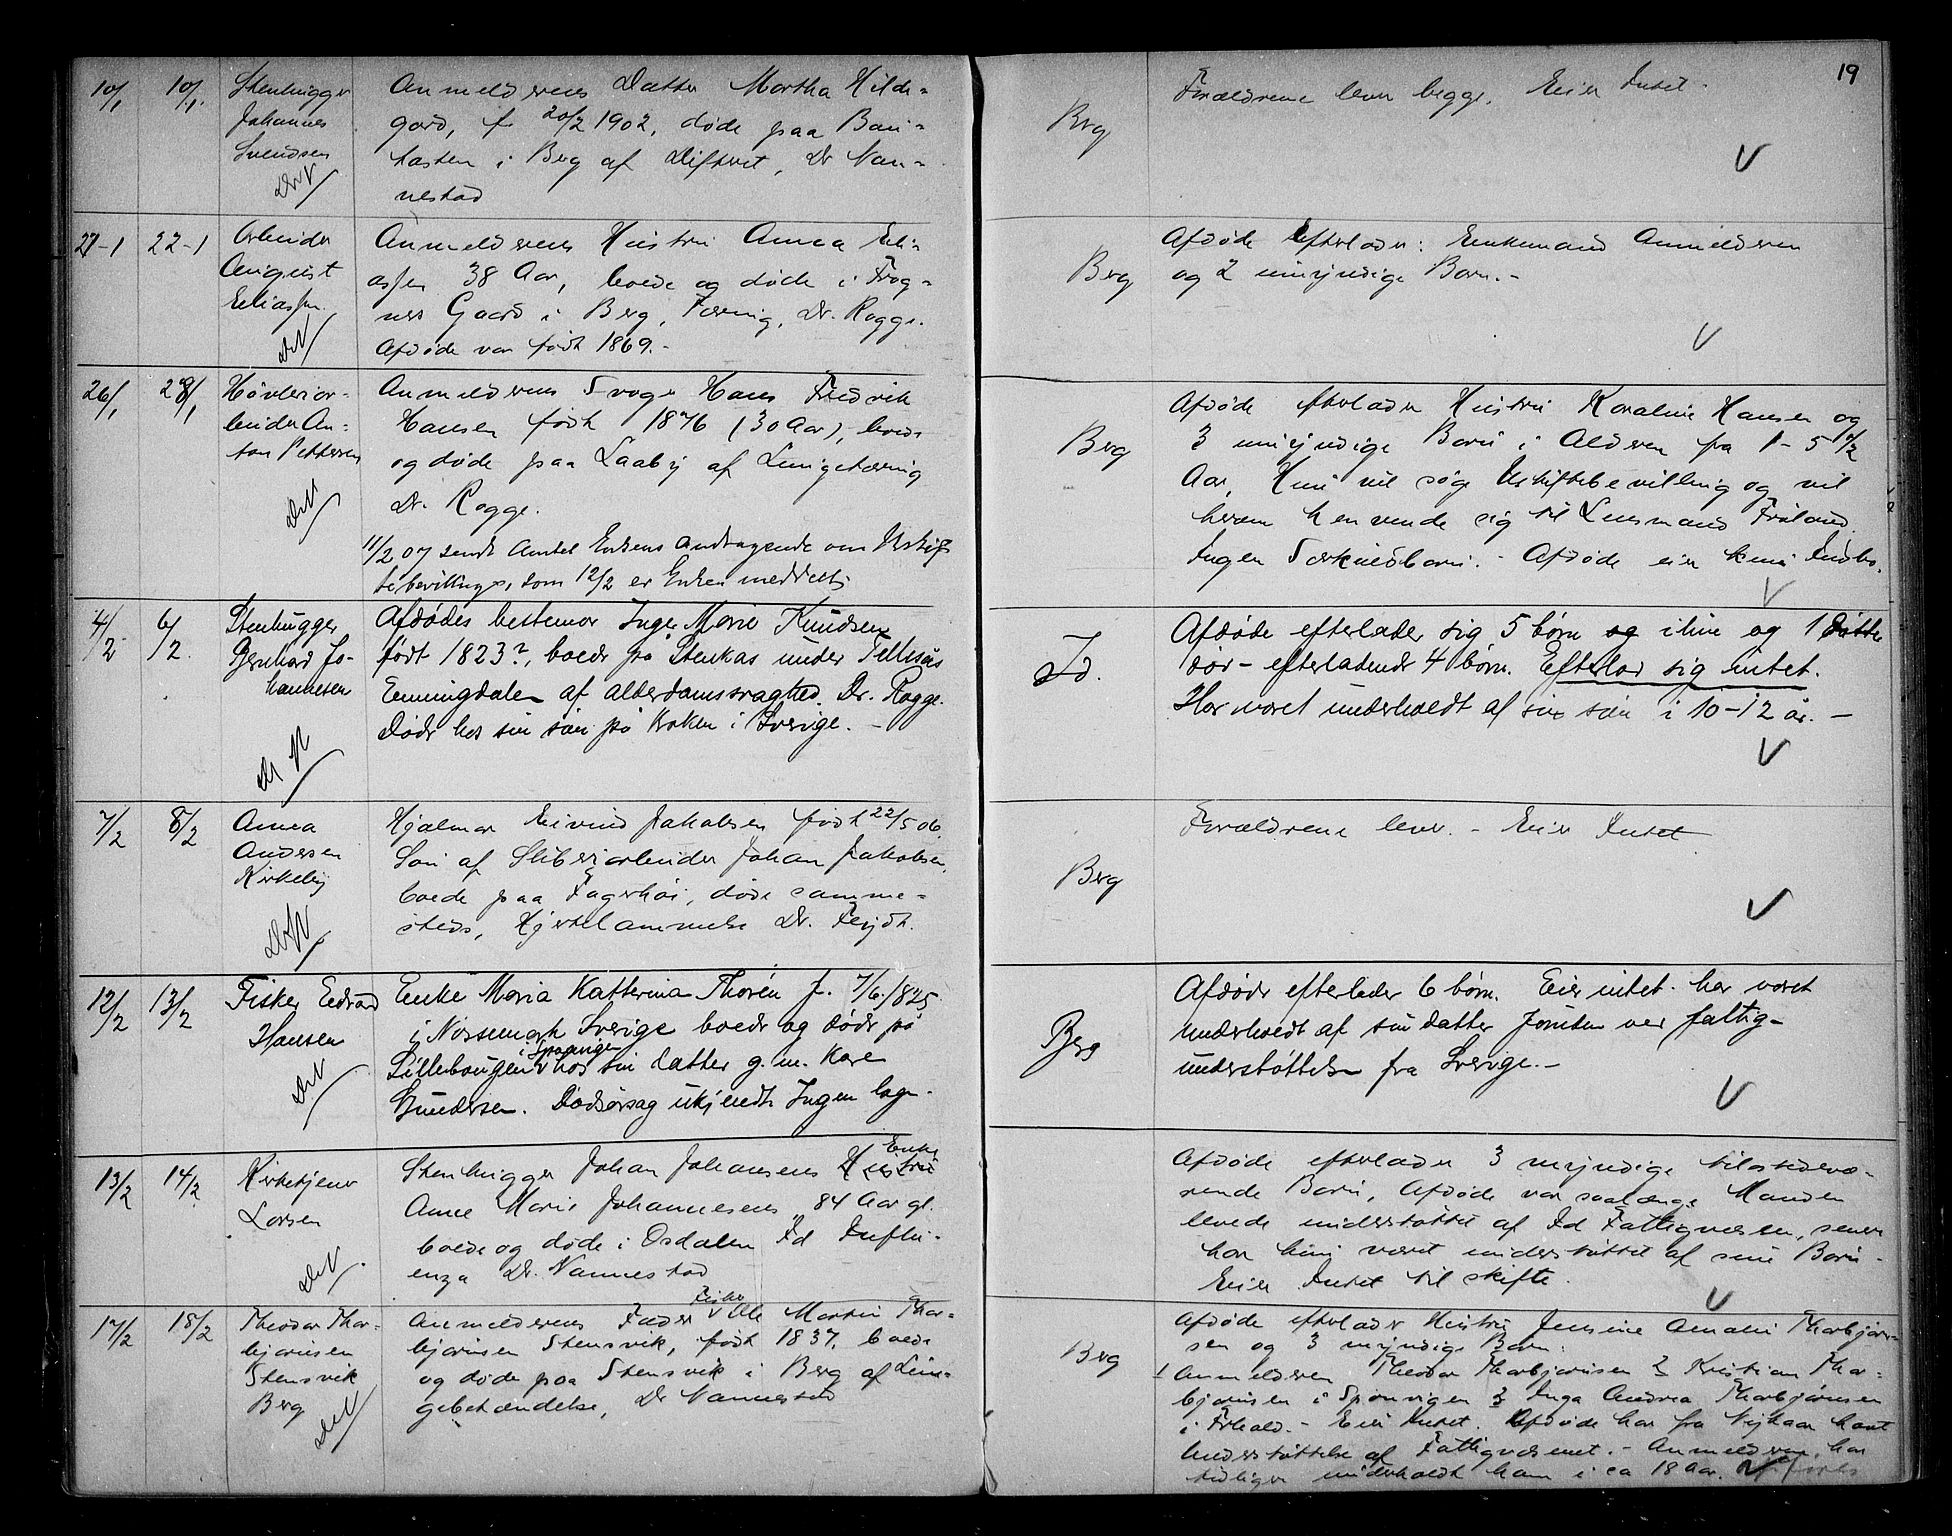 19
10/1 10/1. Stenhugger
Johannes
Svendsen
Anmelderens Datter Martha Hilde-
gard, f 20/2 1902, døde paa Bau-
tasten i Berg af Difterit, Dr Nan-
nestad
Berg
Forældrene lever begge. Eier Intet.
27-1 22-1 Arbeider
August
Eliassen
Anmelderens Hustru Anna Eli-
assen 38 Aar, boede og døde i Frog-
ners Gaard i Berg, Tæring, Dr. Rogge.
Afdøde var født 1869.-
Berg
Afdøde Efterlader: Enkemand Anmelderen
og 2 umyndige Børn.-
26/1 28/1 Høvleriar-
beider An-
ton Pettersen
Anmelderens Svoger Hans Fredrik
Hansen født 1876 (30 Aar), boede
og døde paa Laaby af Lungetæring
Dr. Rogge.
11/2 07 sendt Amtet Enkens andragende om Uskif-
tebevilling, som 12/2 er Enken meddelt.
Berg
Afdøde efterlader Hustru Karoline Hansen og
3 umyndige Børn i Alderen fra 1 - 5 1/2
Aar, Hun vil søge Uskiftebevilling og vil
herom henvende sig til Lensmand Friland.
Ingen Særkuldbørn. Afdøde eier kun Indbo.
4/2 6/2. Stenhugger
Bernhard Jo-
hannesen
Afdødes bestemor Inger Marie Knudsen
født 1823?, boede på Stenkas under Tellesås
Enningdalen af alderdomssvaghed. Dr. Rogge.
Døde hos sin søn på Kroken i Sverige. -
Id.
Afdøde efterlader sig 5 børn ilive og 1 datter
død - efterladende 4 børn. Efterlod sig intet.
Har været underholdt af sin søn i 10-12 år. -
7/2 8/2 Anna
Andersen
Kirkeby
Hjalmar Eivind Jakobsen født 22/5 06.
Søn af Sliberiarbeider Johan Jakobsen,
boede paa Fagerhøi, døde samme-
steds, Hjertelammelse Dr. Feydt.
Berg
Forældrene lever. - Eier Intet
12/2 13/2 Fisker Edvard
Hansen
Enke Maria Katterina Thorén f. 7/6 1825
i Nössemark Sverige boede og døde på
i Sponvigen
Lillebaugen hos sin datter g. m. Kare
Gundersen. Dødsårsag ukjendt. Ingen læge.
Berg
Afdøde efterlader 6 børn. Eier intet. har været
underholdt af sin datter foruden ved fattig-
understøttelse fra Sverige. -
13/2 14/2. Kirketjener
Larsen
Enke
Stenhugger Johan Johansens Hustru
Anne Marie Johannesens 84 Aar gl.
boede og døde i Osdalen Id Influ-
enza Dr. Nannestad
Afdøde efterlader 3 myndige tilstedevæ-
rende Børn, Afdøde var saalænge Manden
levede understøttet af Id Fattigvæsen, senere
har hun været understøttet af sine Børn.
Eier Intet til skifte.
17/2 18/2 Theodor Thor-
bjørnsen
Stensvik
Berg
Fisker
Anmelderens Fader Ole Martin Thor-
bjørnsen Stensvik, født 1837, boede
og døde paa Stensvik i Berg af Lun-
gebetændelse, Dr Nannestad
Berg
Afdøde efterlader Hustru Jensine Amalie Thorbjørn-
sen og 3 myndige Børn:
1 Anmelderen Theodor Thorbjørnsen 2 Kristian Thor-
bjørnsen i Sponvigen 3 Inga Andrea Thorbjørnsen
i Frhald. - Eier Intet. Afdøde har fra Nyttaar havt
Understøttelse af Fattigvæsenet. - Anmelderen har
tidligere underholdt ham i ca 18 Aar.